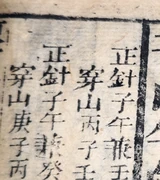 正針子午兼壬
穿山丙子
正針子午兼癸
穿山庚子丙